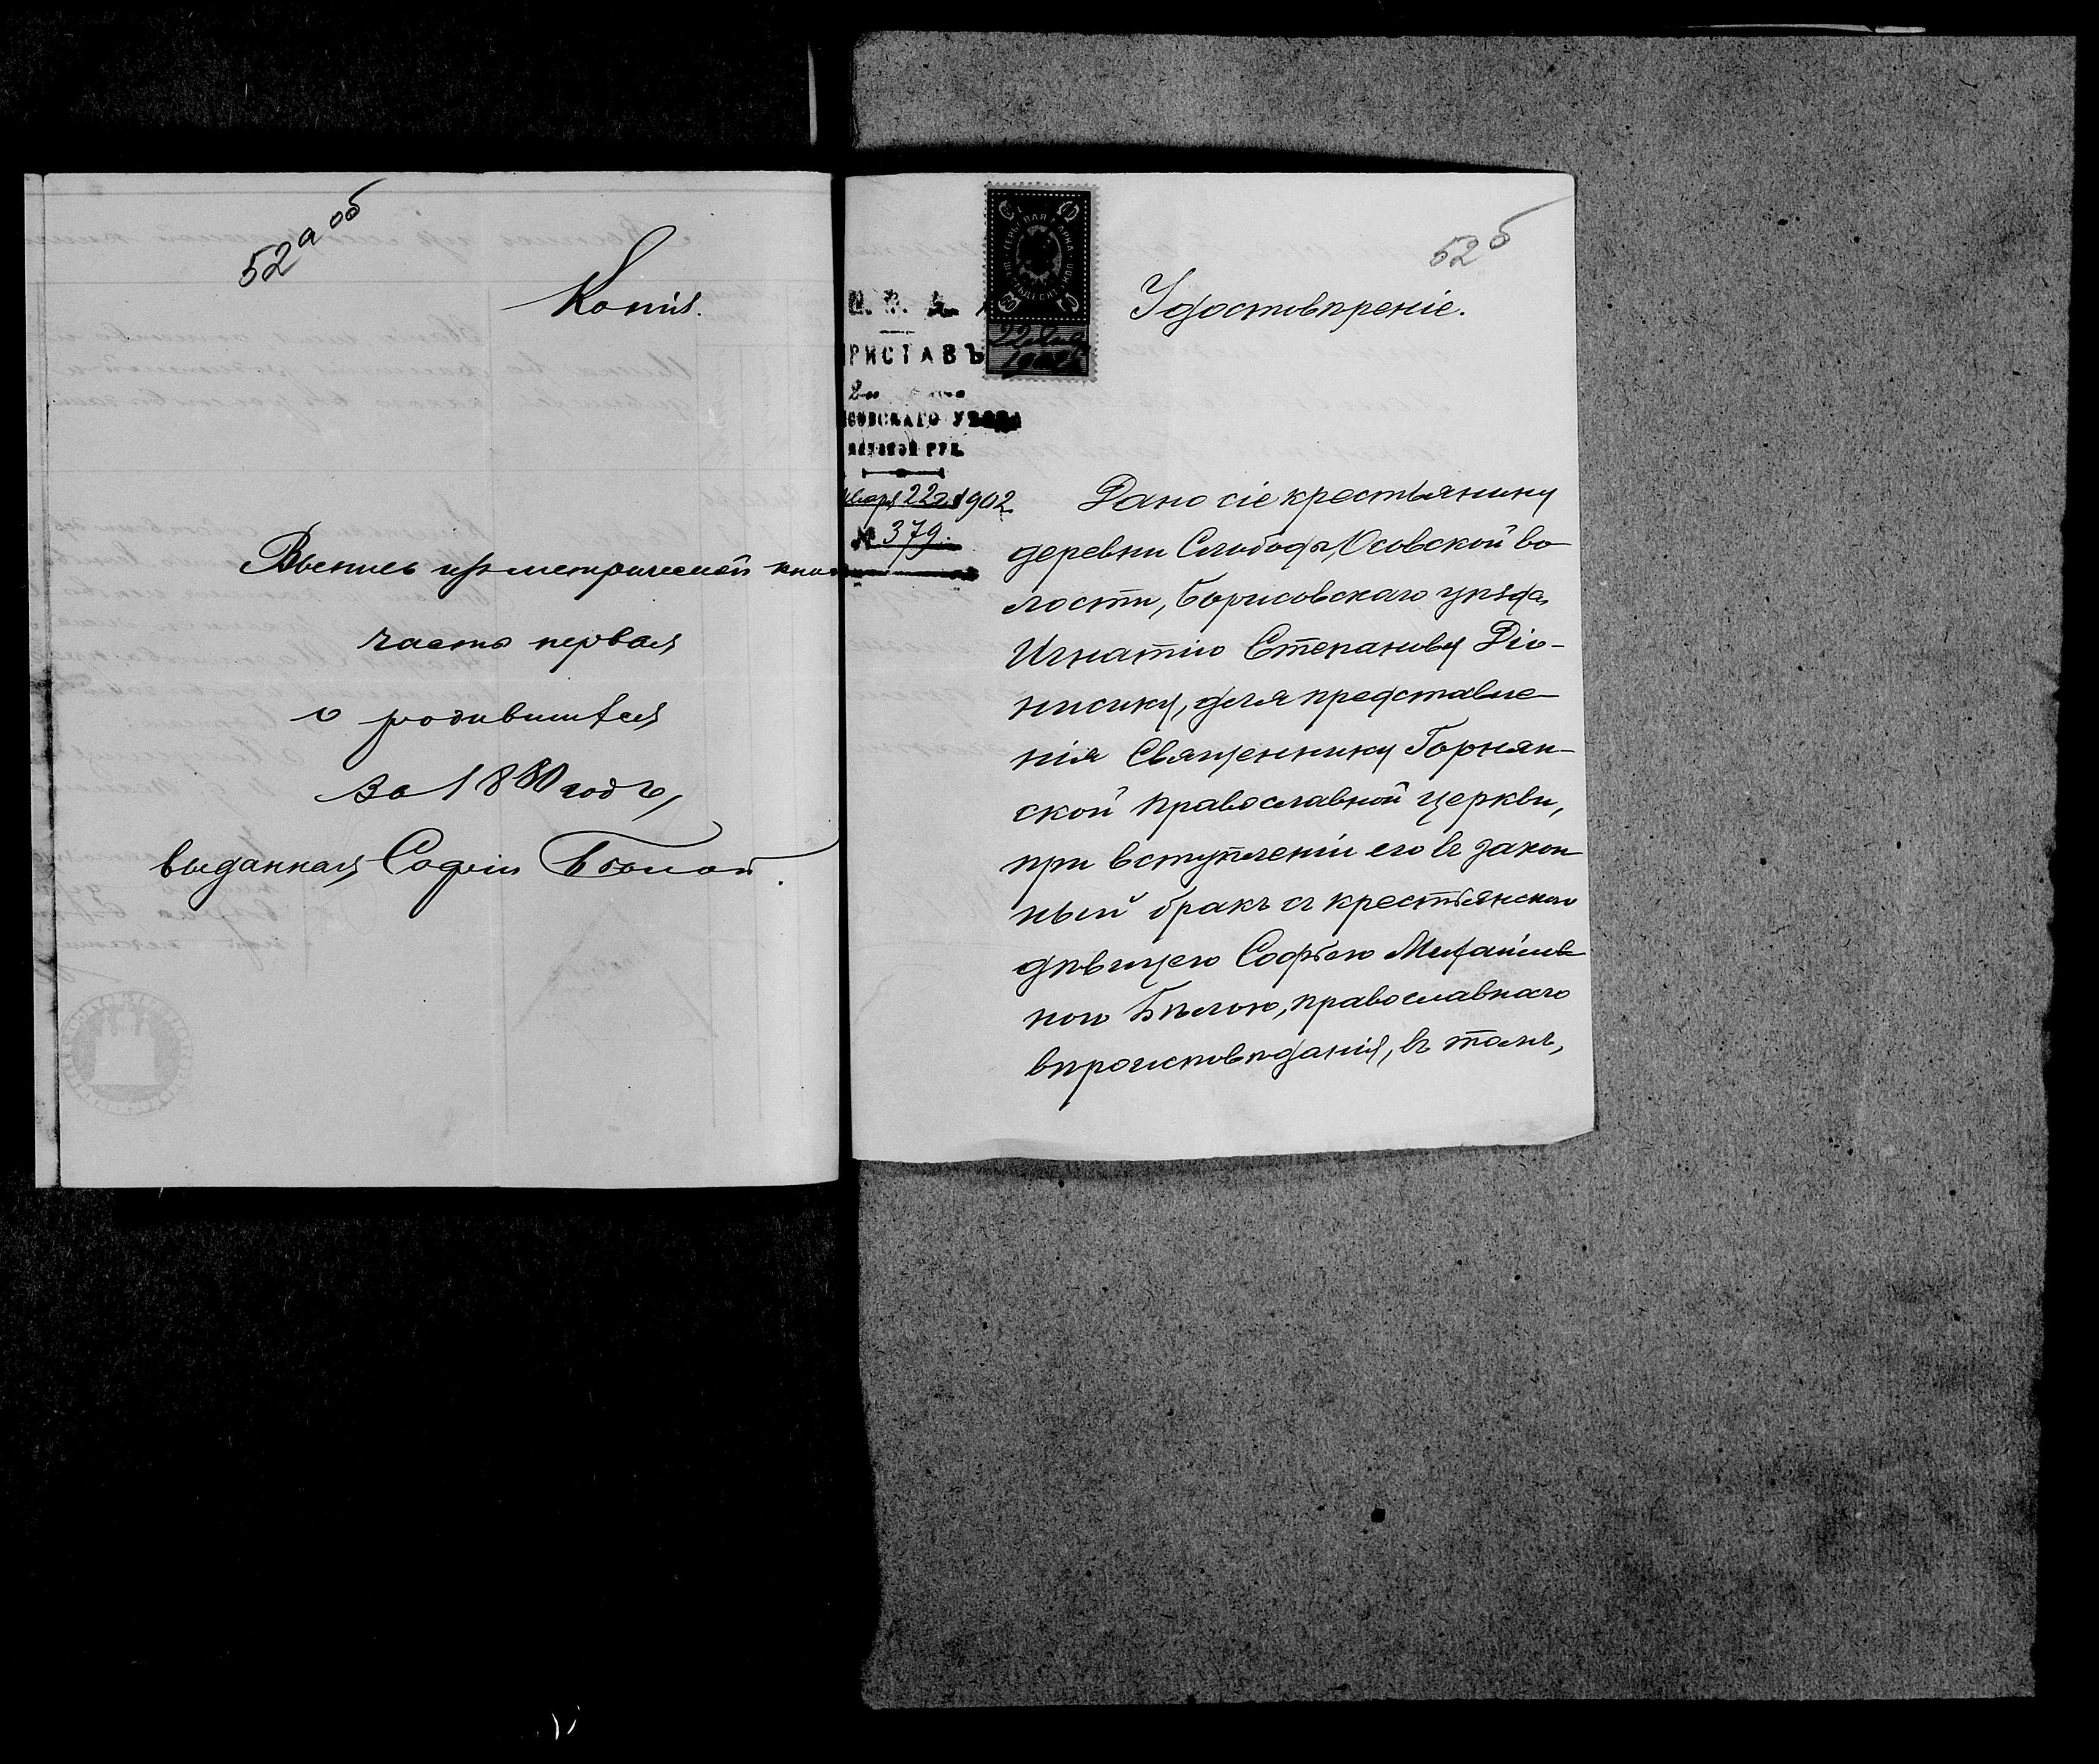 52а об
Копія.
Выпись изъ метрической кни
часть первая
о родившихся
за 1880 годъ,
выданная Софіи Бѣлой.
52б
Удостовѣреніе.
М. В. Д.
РИСТАВЪ
2го
СОВСКАГО УѢЗДА
МИНСКОЙ ГУБ.
нваря 22 д. 1902
№ 379.
ГЕРБОВАЯ МАРКА
22 Янв
1902
Дано сіе крестьянину
деревни Слободы, Осовской во
лости, Борисовскаго уѣзда,
Игнатію Степанову Діо-
нисику, для представле-
нія Священнику Горнян-
ской православной церкви,
при вступленіи его въ закон
ный бракъ съ крестьянскою
дѣвицею Софьею Михайлов
ною Бѣлою, православнаго
вѣроисповѣданія, въ томъ,